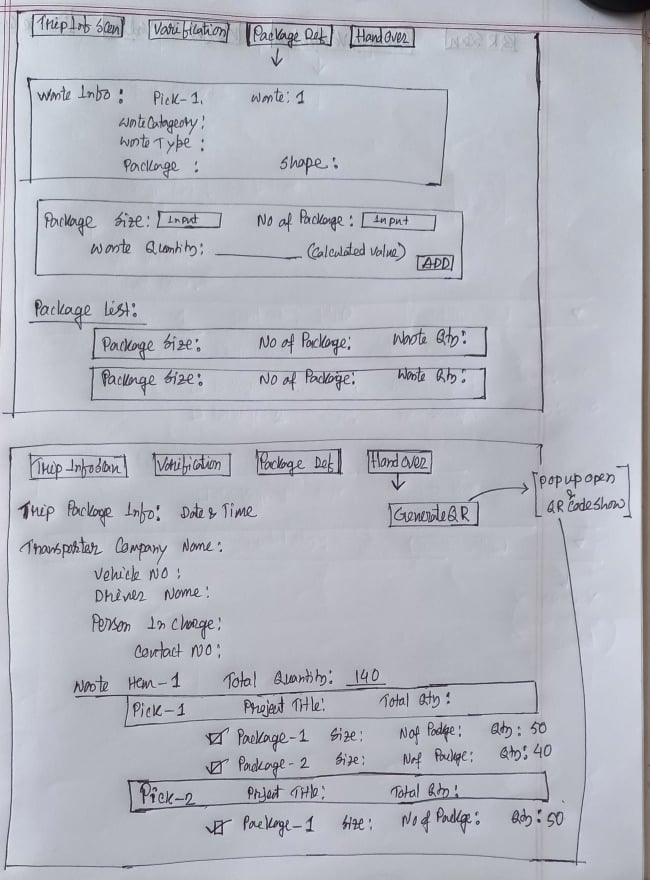 Trip Info Scan Varification Package Def HandOver
Waste Info: Pick-1. Waste: 1
Waste Catageory:
Waste Type:
Package: Shape:
Package Size: Input No of Package: Input
Waste Quantity: ________ (Calculated Value)
ADD
Package List:
Package Size: No of Package: Waste Qty:
Package Size: No of Package: Waste Qty:
Trip Info Scan Varification Package Def HandOver
popup open
&
QR Code show
Trip Package Info: Date & Time Generate QR
Transporter Company Name:
Vehicle NO:
Driver Name:
Person In Charge:
Contact NO:
Waste Item-1 Total Quantity: 140
Pick-1 Project Title: Total Qty:
Package-1 Size: No of Package: Qty: 50
Package-2 Size: No of Package: Qty: 40
Pick-2 Project Title: Total Qty:
Package-1 Size: No of Package: Qty: 50